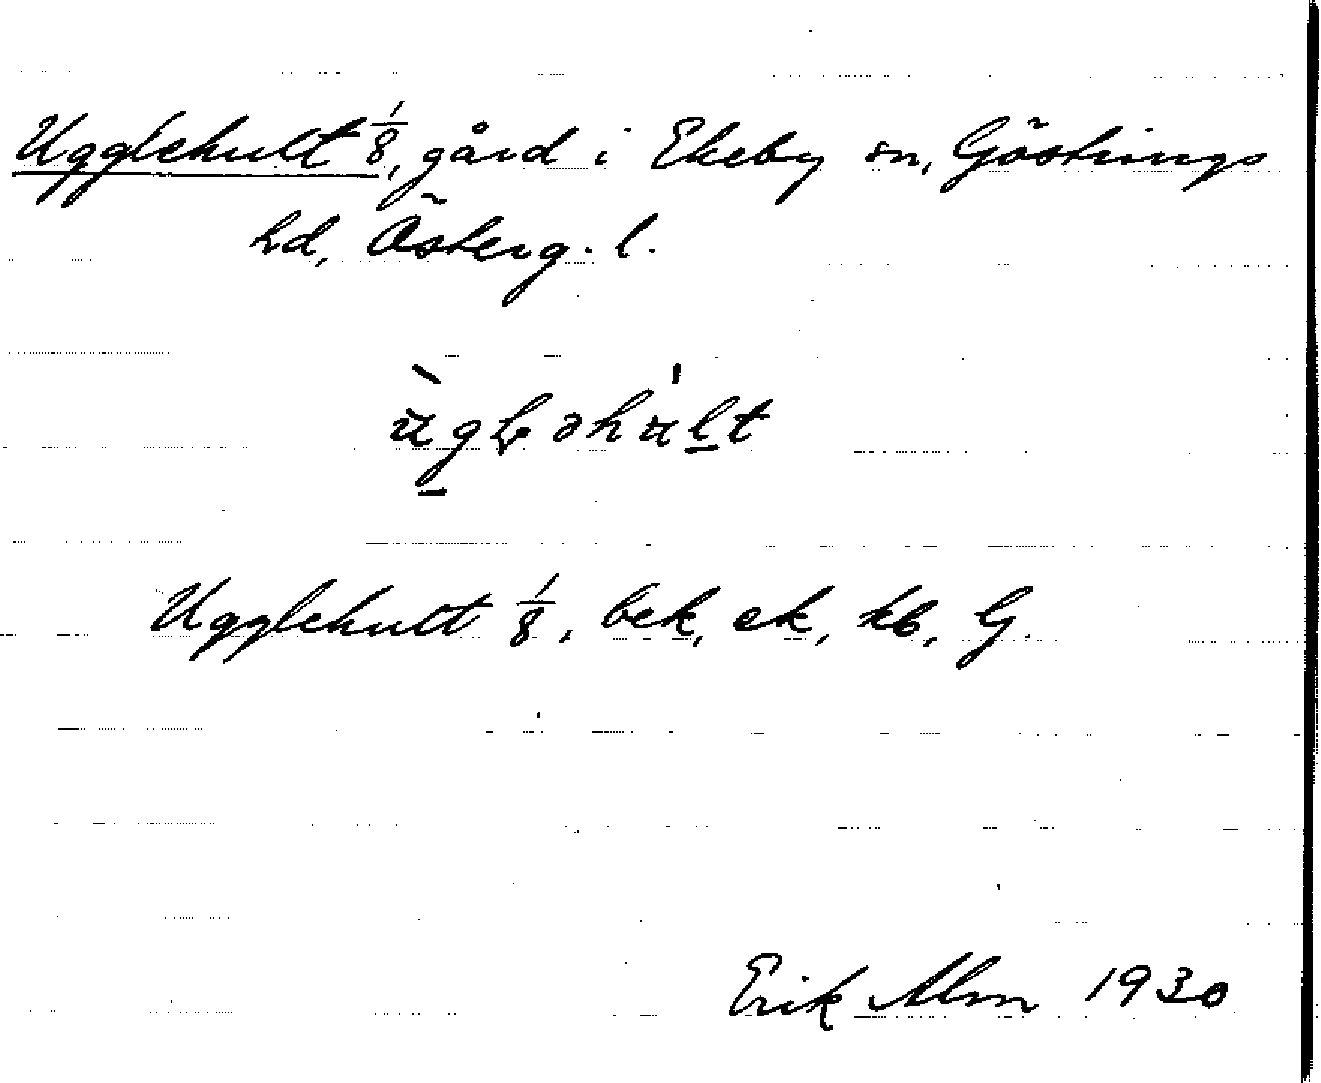 Ugglehult 1/8, gård i Ekeby sn, Göstrings
hd, Österg. l.
Ugglehult 1/8, bek, ek, kb, G.
Erik Alm 1930